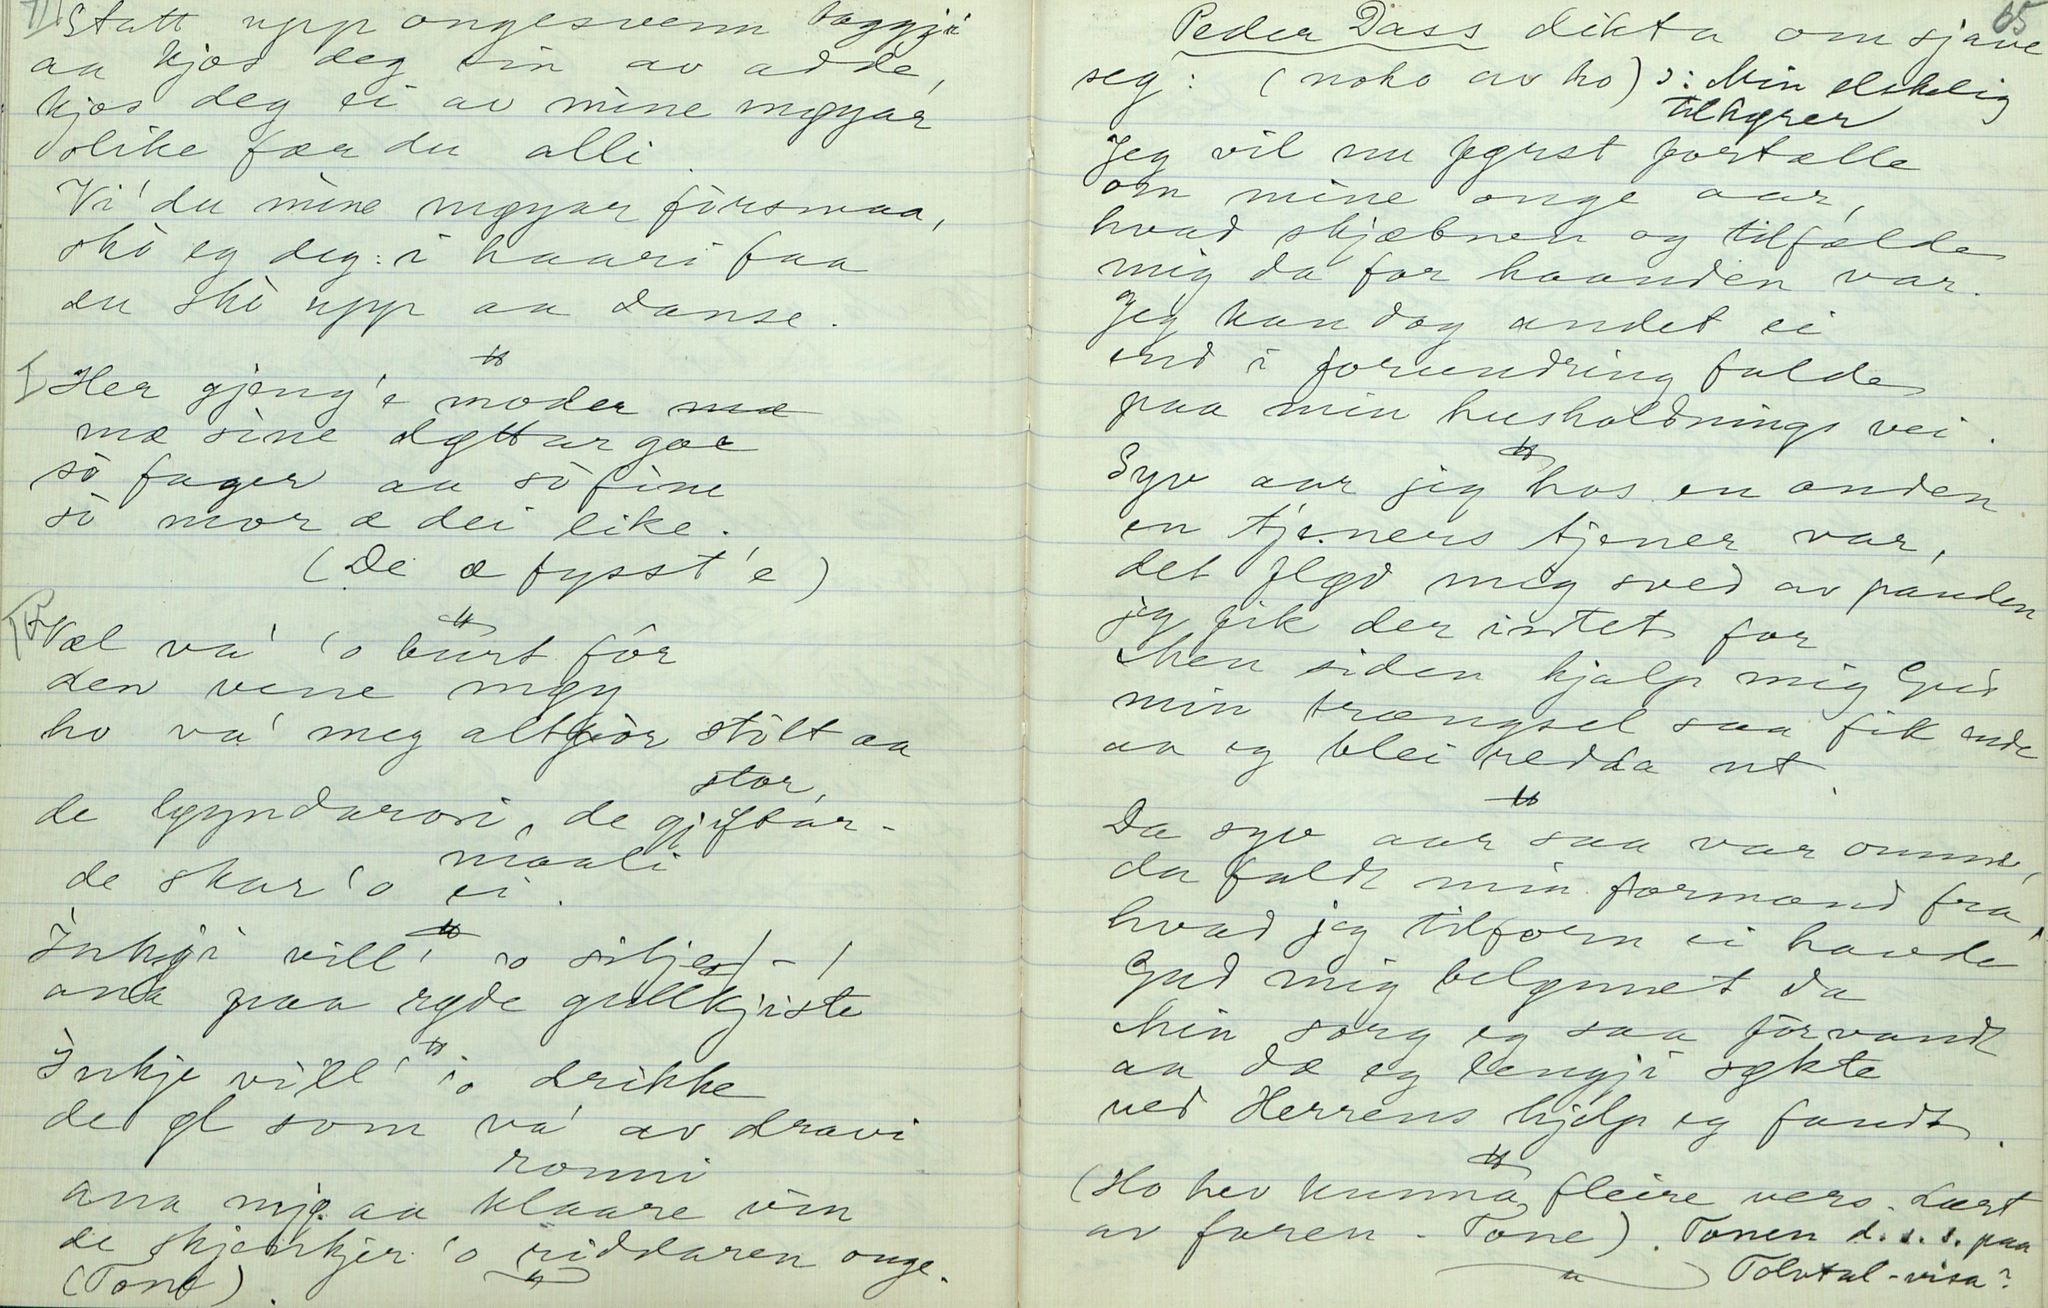 II Statt upp ongesvenn
aa kjos deg ein av adde,
kjos deg ei av mine møyar
slike fær du alli
Vi' du mine møyar fòrsmaa,
skò eg deg i haari faa
du skò upp aa danse.
I Her gjeng'e moder
mæ sine døttar goe
sò fager aa sò fine
sò mor æ dei like.
(De æ fysst'e)
IV Væl va' 'o burt fòr
den vene møy
ho va' meg altfòr stòlt aa
stor,
de løyndarori, de gjiftar-
maali
de skar 'o ei.
Inkji vill' 'o silje
ana paa røde gullkjiste
Inkje vill' 'o drikke
de øl som va' av dravi
ronni
ana mjø aa klaare vin
de skjenkjer 'o riddaren onge.
(Tone).
65
Peder Dass dikta om sjave
seg: (noko av ho) ɔ: Min elskelig
tilhører
Jeg vil nu først fortælle
om mine onge aar,
hvad skjæbnen og tilfælde
mig da for haanden var.
Jeg kan dog andet ei
end i forundring falde
paa min husholdnings vei.
Syv aar jeg hos en anden
en tjeners tjener var,
det flød mig sved av panden
jeg fik der intet for
Men siden hjalp mig Gud
min trængsel saa fik ende
aa eg blei redda ut.
Da syv aar saa var omme,
da faldt min formand fra,
hvad jeg tilforn ei havde
Gud mig belønnet da
Min sorg eg saa forvandt
aa dæ eg lengji søkte
ved Herrens hjelp eg fandt.
(Ho hev kunna fleire vers. Lært
av faren - Tone). Tonen d.s.s. paa
Tolvtal-visa?